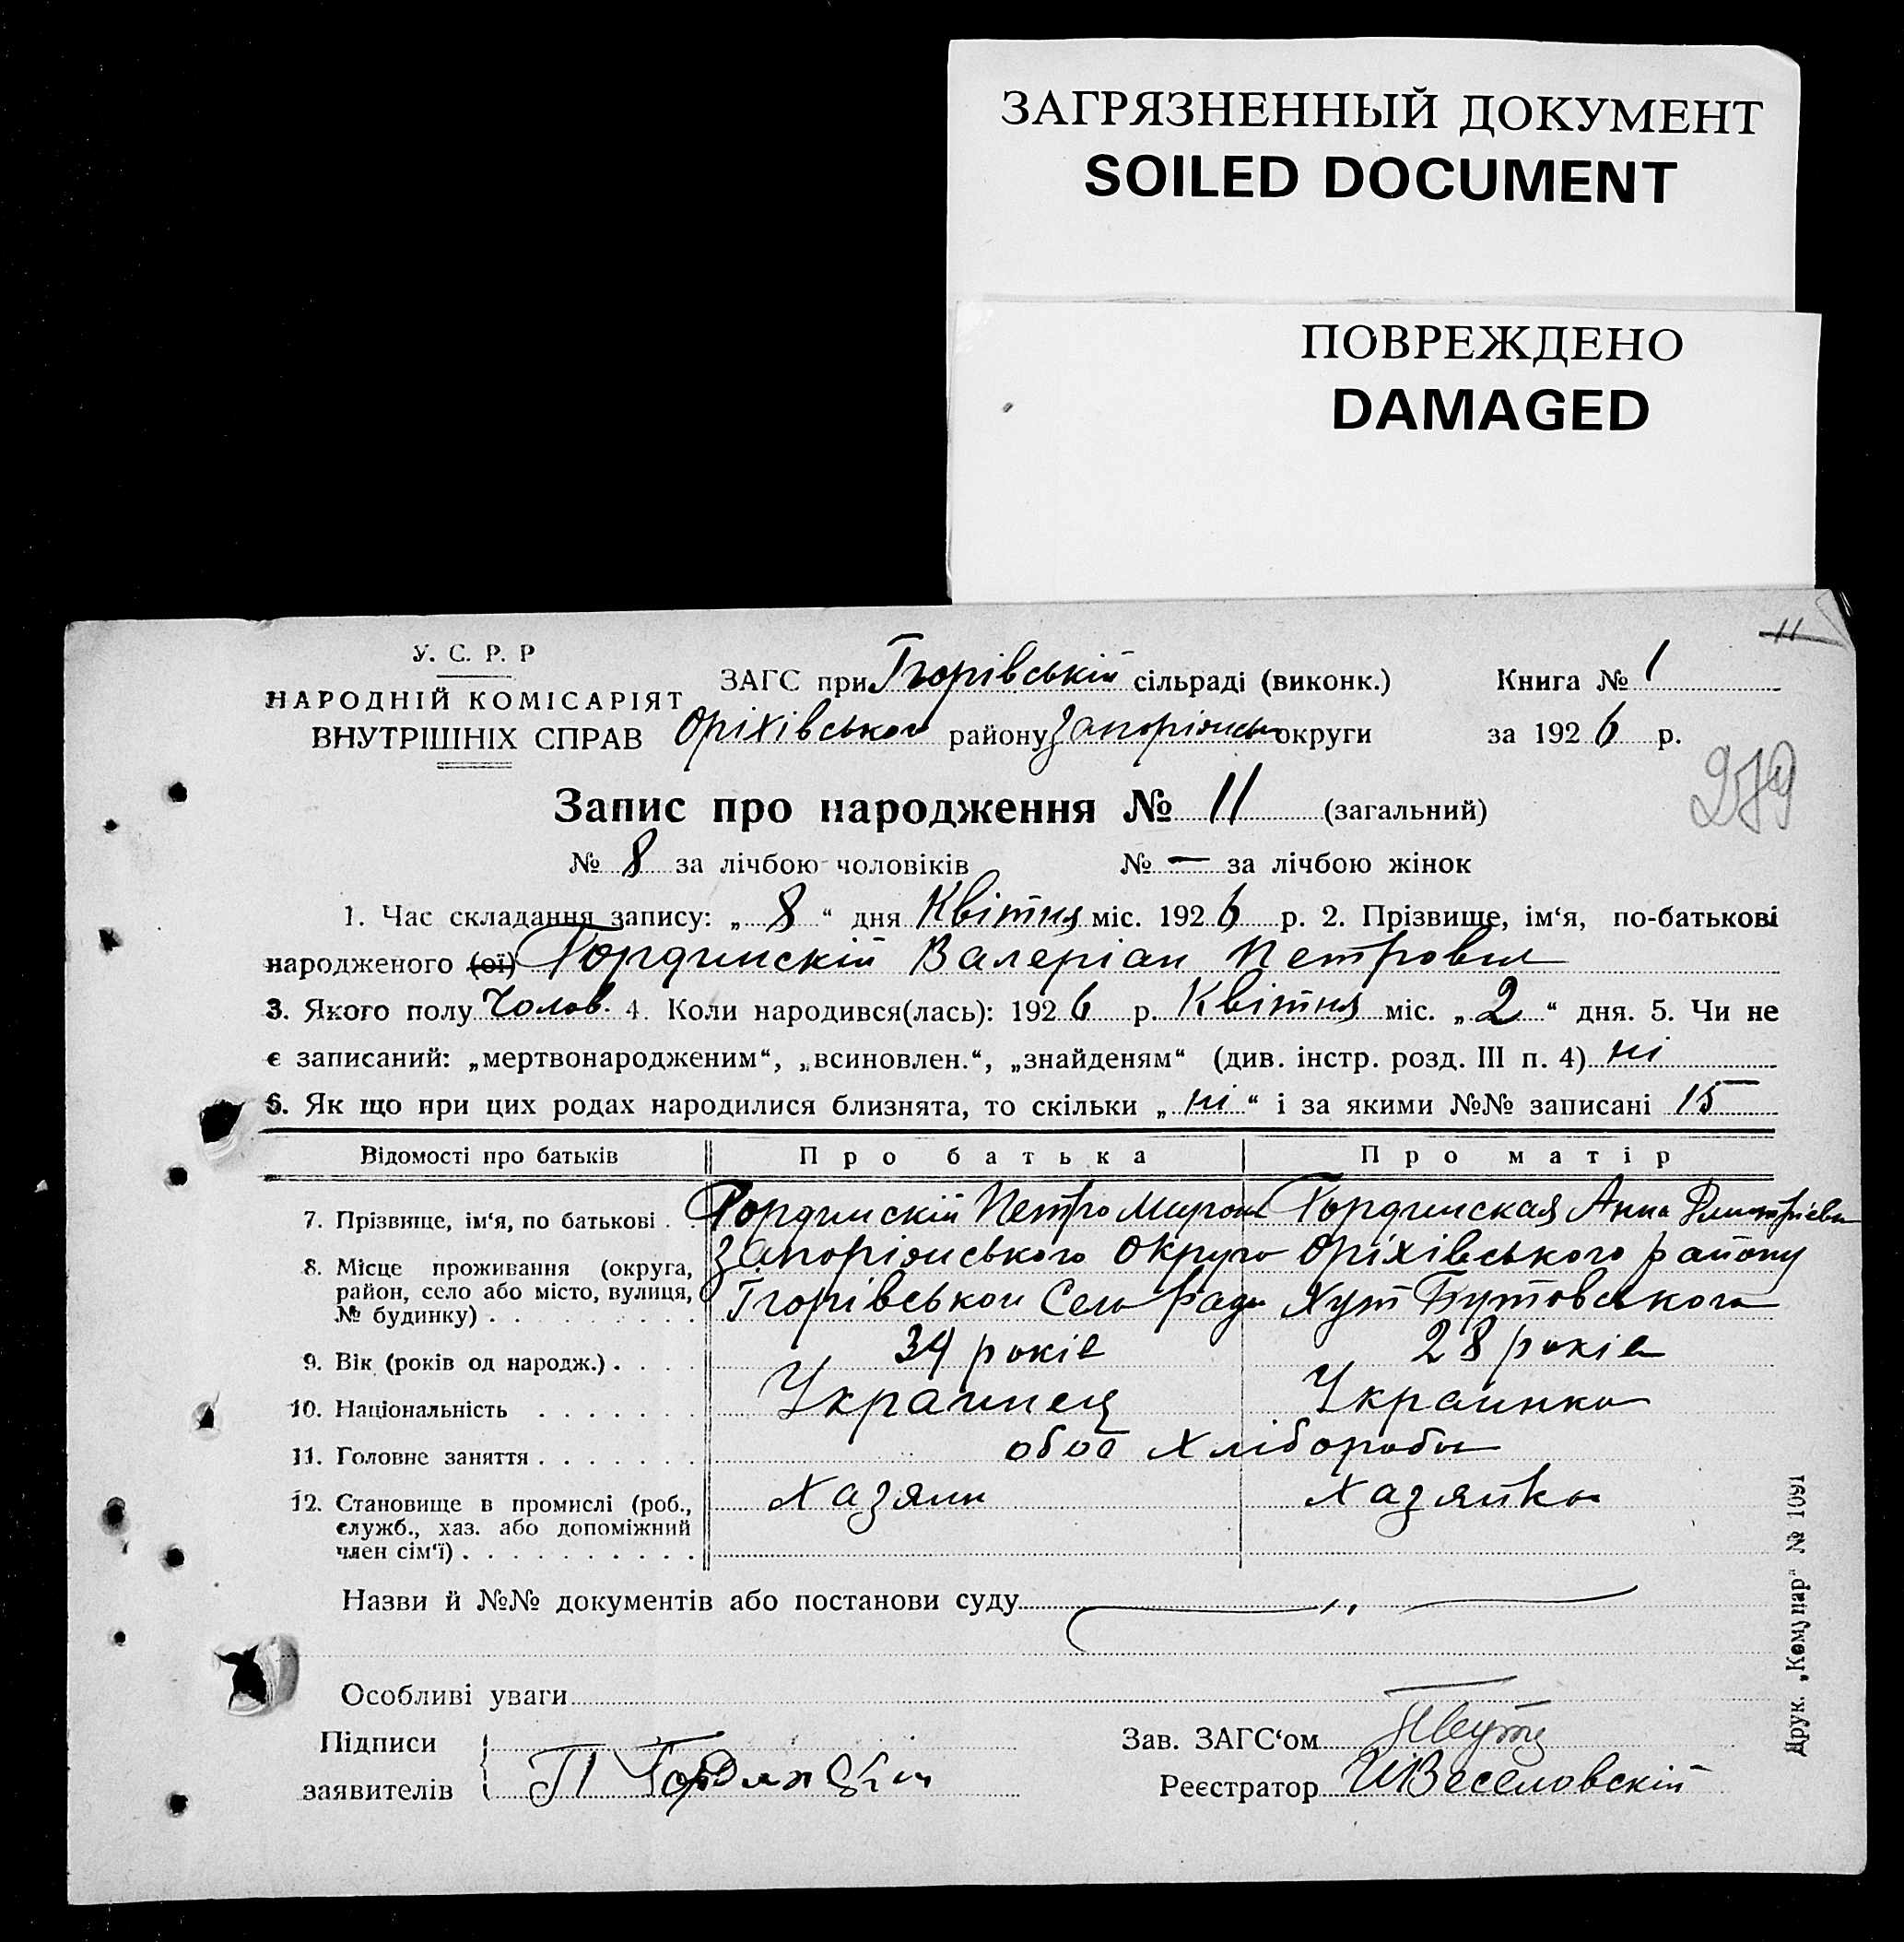 ЗАГРЯЗНЕННЫЙ ДОКУМЕНТ
SOILED DOCUMENT
ПОВРЕЖДЕНО
DAMAGED
11
У. С. Р. Р
НАРОДНІЙ КОМІСАРІЯТ
ВНУТРІШНІХ СПРАВ
ЗАГС при Ігорівській сільраді (виконк.) Книга № 1
Оріхівського району Запоріжськ округи за 1926 р.
279
Запис про народження № 11 (загальний)
№ 8 за лічбою чоловіків № — за лічбою жінок
1. Час складання запису: „ 8 “ дня Квітня міс. 1926 р. 2. Прізвище, ім‘я, по-батькові
народженого (ої) Гординскій Валеріан Петрович
3. Якого полу Чолов. 4. Коли народився(лась): 1926 р. Квітня міс. „ 2 “ дня. 5. Чи не
є записаний: „мертвонародженим“, „всиновлен.“, „знайденям“ (див. інстр. розд. III п. 4) ні
6. Як що при цих родах народилися близнята, то скільки „ ні “ і за якими №№ записані 15
Відомості про батьків Про батька Про матір
7. Прізвище, ім‘я, по батькові . . Гординскій Петро Мирон Гординская Анна Дмитріевн
8. Місце проживання (округа, Запоріжського Округа Оріхівського району
район, село або місто, вулиця, Ігорівськои Село Ради Хут Бутовського
№ будинку) . . . . . . . . .
9. Вік (років од народж.) . . . . 34 років 28 років
10. Національність . . . . . . . Украинец Украинка
11. Головне заняття . . . . . . . обоє Хлібороби
12. Становище в промислі (роб., Хазяин Хазяйка
служб., хаз. або допоміжний
член сім‘ї) . . . . . . . . . .
Назви й №№ документів або постанови суду — „ —
Особливі уваги
Підписи Зав. ЗАГС‘ом
заявителів П Гординскій Реєстратор И Веселовскій
Друк. „Комунар“ № 1091